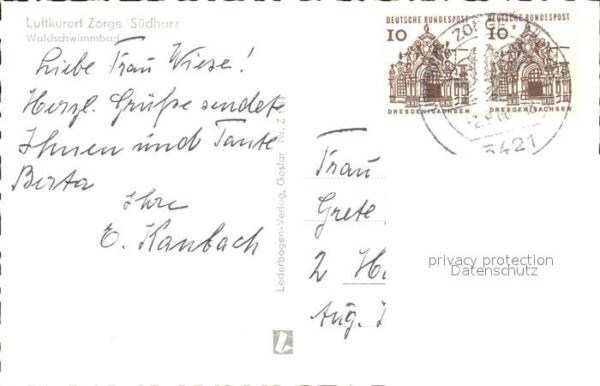 Luftkurort Zorge/Südharz
Waldschwimmbad
Liebe Frau Wiese!
Herzl. Grüße sendet
Ihnen und Tante
Berta
Ihre
E. Kaubach
Lederbogen-Verlag, Goslar Nr. Z
DEUTSCHE BUNDESPOST
10
DRESDEN/SACHSEN
DEUTSCHE BUNDESPOST
10
DRESDEN/SACHSEN
ZORGE
3421
Frau
Grete
2 H
Aug.
privacy protection
Datenschutz